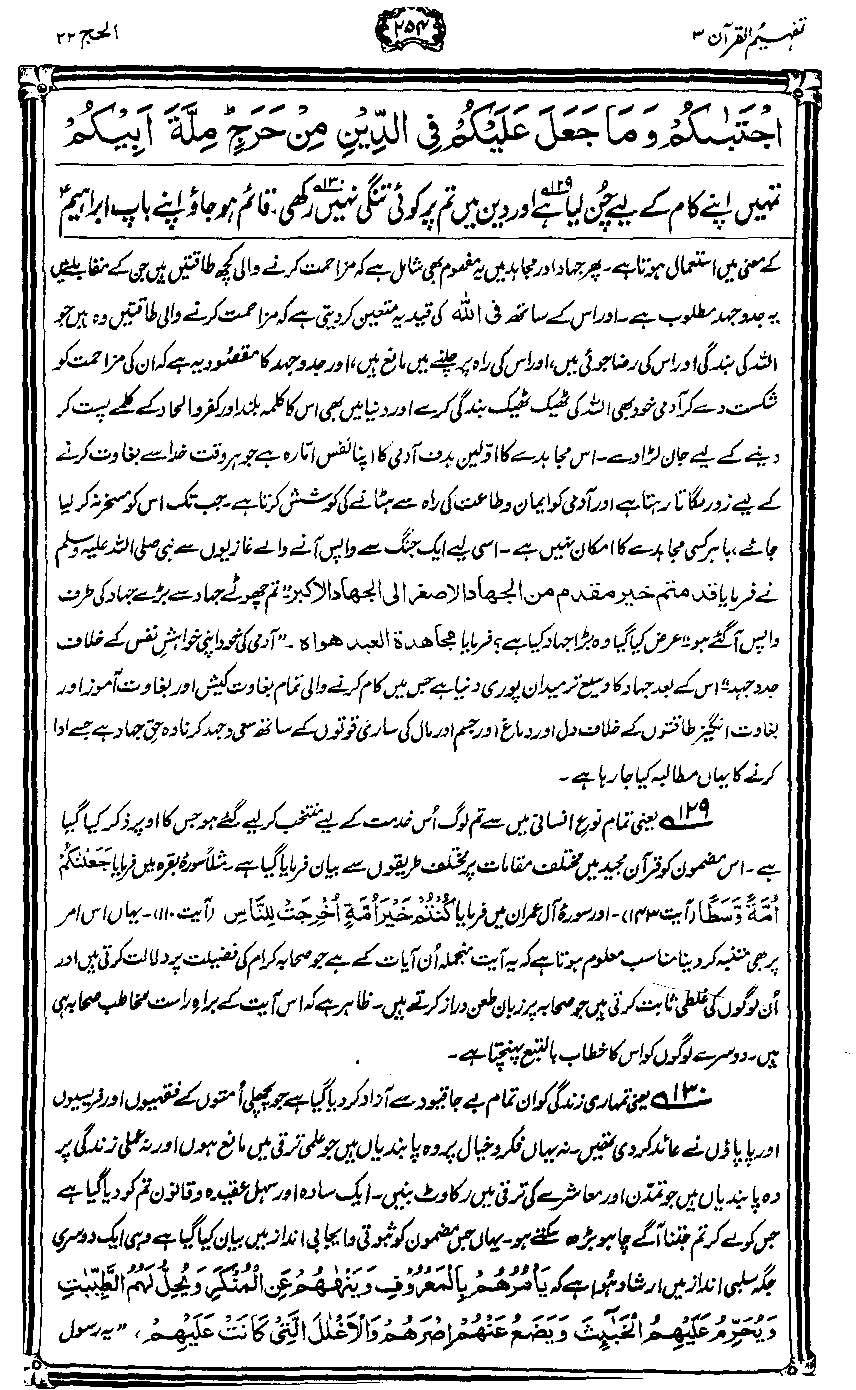 تفہیم القرآن ۳
۲۵۴
الحج ۲۲
اجْتَبٰىكُمْ وَمَا جَعَلَ عَلَيْكُمْ فِي الدِّيْنِ مِنْ حَرَجٍ ؕ مِلَّةَ اَبِيْكُمْ
تمہیں اپنے کام کے لیے چُن لیا ہے۱۲۹ اور دین میں تم پر کوئی تنگی نہیں رکھی۱۳۰۔ قائم ہو جاؤ اپنے باپ ابراہیمؑ
کے معنی میں استعمال ہوتا ہے۔ پھر جہاد اور مجاہدمیں یہ مفہوم بھی شامل ہے کہ مزاحمت کرنے والی کچھ طاقتیں ہیں جن کے مقابلے میں
یہ جدوجہد مطلوب ہے۔ اور اس کے ساتھ فی اللہ کی قید یہ متعین کر دیتی ہے کہ مزاحمت کرنے والی طاقتیں وہ ہیں جو
اللہ کی بندگی اور اس کی رضا جوئی میں، اور اس کی راہ پر چلنے میں مانع ہیں، اور جدوجہد کا مقصود یہ ہے کہ ان کی مزاحمت کو
شکست دے کر آدمی خود بھی اللہ کی ٹھیک ٹھیک بندگی کرے اور دنیا میں بھی اس کا کلمہ بلند اور کفر و الحاد کے کلمے پست کر
دینے کے لیے جان لڑا دے۔ اس مجاہدے کا اوّلین ہدف آدمی کا اپنا نفس امّارہ ہے جو ہر وقت خدا سے بغاوت کرنے
کے لیے زور لگاتا رہتا ہے اور آدمی کو ایمان و طاعت کی راہ سے ہٹانے کی کوشش کرتا ہے۔ جب تک اس کو مسخر نہ کر لیا
جائے، باہر کسی مجاہدے کا امکان نہیں ہے۔ اسی لیے ایک جنگ سے واپس آنے والے غازیوں سے نبی صلی اللہ علیہ وسلم
نے فرمایا قد متم خیر مقدم من الجھاد الاصغر الی الجھاد الاکبر۔ "تم چھوٹے جہاد سے بڑے جہاد کی طرف
واپس آ گئے ہو"۔ عرض کیا گیا وہ بڑا جہاد کیا ہے؟ فرمایا مجاھدة العبد ھواہ ۔ "آدمی کی خود اپنی خواہشِ نفس کے خلاف
جدوجہد"۔ اس کے بعد جہاد کا وسیع تر میدان پوری دنیا ہے جس میں کام کرنے والی تمام بغاوت کیش اور بغاوت آموز اور
بغاوت انگیز طاقتوں کے خلاف دل اور دماغ اور جسم اور مال کی ساری قوتوں کے ساتھ سعی و جہد کرنا وہ حق جہاد ہے جسے ادا
کرنے کا یہاں مطالبہ کیا جا رہا ہے۔
۱۲۹ یعنی تمام نوعِ انسانی میں سے تم لوگ اُس خدمت کے لیے منتخب کر لیے گئے ہو جس کا اوپر ذکر کیا گیا
ہے۔ اس مضمون کو قرآن مجید میں مختلف مقامات پر مختلف طریقوں سے بیان فرمایا گیا ہے۔ مثلاً سورۂ بقرہ میں فرمایا جَعَلْنٰكُمْ
اُمَّةً وَّسَطًا (آیت ۱۴۳)۔ اور سورۂ آل عمران میں فرمایا كُنْتُمْ خَيْرَ اُمَّةٍ اُخْرِجَتْ لِلنَّاسِ (آیت ۱۱۰)۔ یہاں اس امر
پر بھی متنبہ کر دینا مناسب معلوم ہوتا ہے کہ یہ آیت منجملہ اُن آیات کے ہے جو صحابہ کرام کی فضیلت پر دلالت کرتی ہیں اور
اُن لوگوں کی غلطی ثابت کرتی ہیں جو صحابہ پر زبان طعن دراز کرتے ہیں۔ ظاہر ہے کہ اس آیت کے براہِ راست مخاطب صحابہ ہی
ہیں۔ دوسرے لوگوں کو اس کا خطاب بالتبع پہنچتا ہے۔
۱۳۰ یعنی تمہاری زندگی کو ان تمام بے جا قیود سے آزاد کر دیا گیا ہے جو پچھلی اُمتوں کے فقیہوں اور فریسیوں
اور پاپاؤں نے عائد کر دی تھیں۔ نہ یہاں فکر و خیال پر وہ پابندیاں ہیں جو علمی ترقی میں مانع ہوں اور نہ عملی زندگی پر
وہ پابندیاں ہیں جو تمدن اور معاشرے کی ترقی میں رکاوٹ بنیں۔ ایک سادہ اور سہل عقیدہ و قانون تم کو دیا گیا ہے
جس کو لے کر تم جتنا آگے چاہو بڑھ سکتے ہو۔ یہاں جس مضمون کو ثبوتی و ایجابی انداز میں بیان کیا گیا ہے وہی ایک دوسری
جگہ سلبی انداز میں ارشاد ہوا ہے کہ يَاْمُرُهُمْ بِالْمَعْرُوْفِ وَيَنْهٰىهُمْ عَنِ الْمُنْكَرِ وَيُحِلُّ لَهُمُ الطَّيِّبٰتِ
وَيُحَرِّمُ عَلَيْهِمُ الْخَبٰٓئِثَ وَيَضَعُ عَنْهُمْ اِصْرَهُمْ وَالْاَغْلٰلَ الَّتِيْ كَانَتْ عَلَيْهِمْ ، "یہ رسول